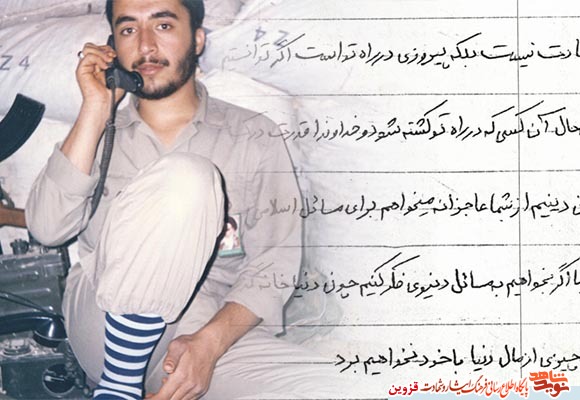 ادت نیست بلکه پیروزی در راه تو است اگر توانستم
حال آن کسی که در راه تو کشته شود و خداوندا قدرت درک
دینیم از شما عاجزانه میخواهم برای مسائل اسلامی
ا اگر بخواهیم به مسائل دنیوی فکر کنیم چون دنیا خانه
چیزی از مال دنیا با خود نخواهیم برد
نوید شاهد
پایگاه اطلاع رسانی فرهنگ ایثار و شهادت قزوین
Z4